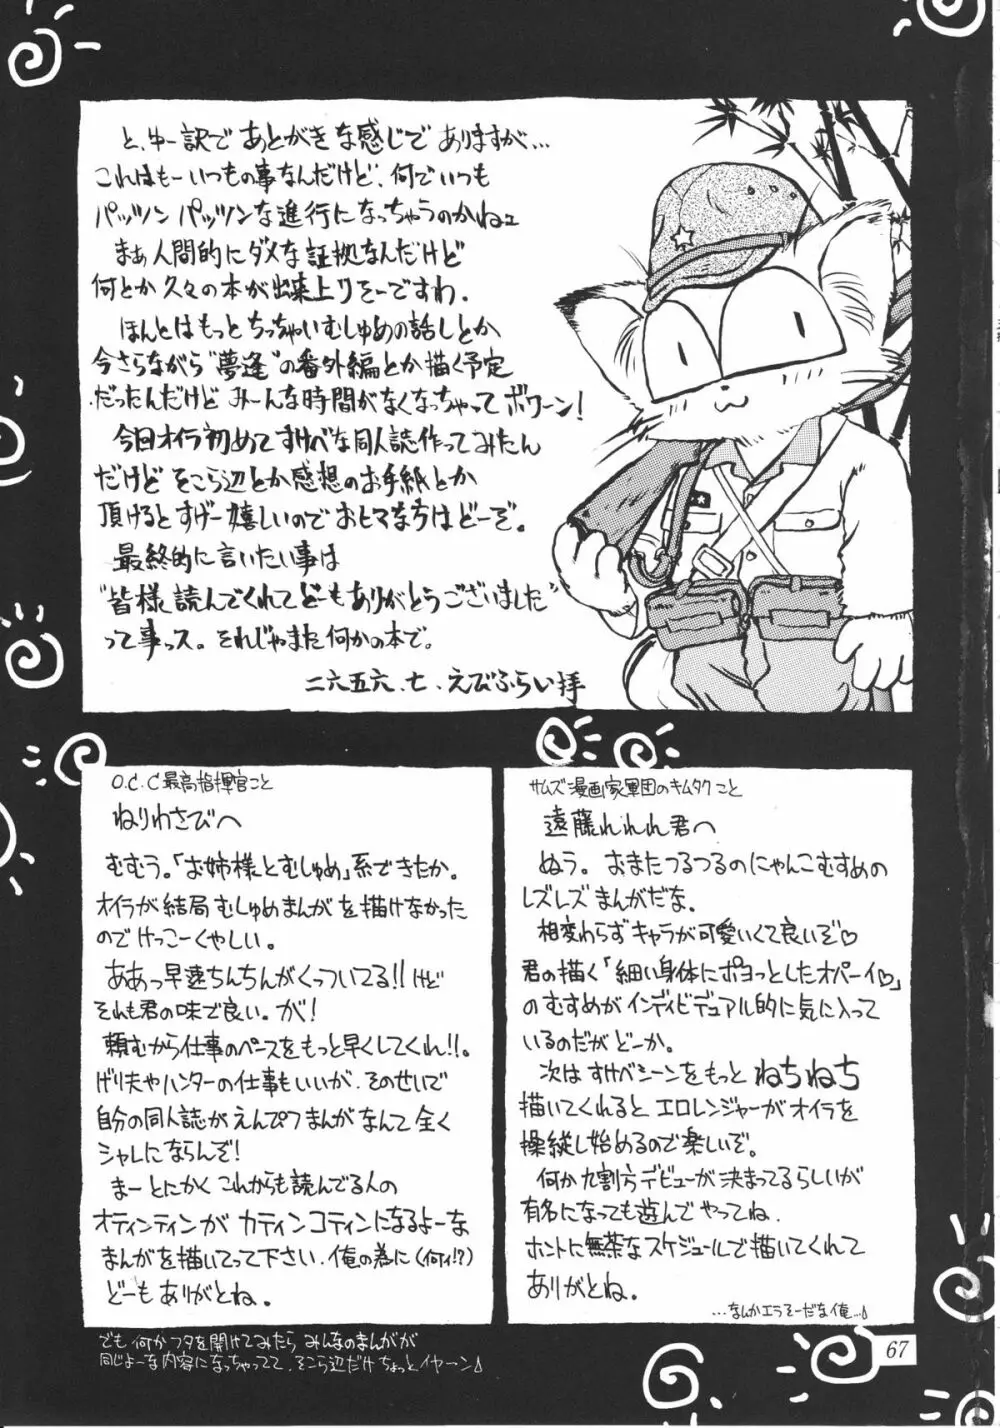 と、ゆー訳で あとがきな感じで ありますが…
これはもー いつもの事なんだけど、何でいつも
パッツン パッツンな進行になっちゃうのかねェ
まぁ 人間的にダメな証拠なんだけど
何とか久々の本が出来上りそーですわ。
ほんとはもっとちっちゃいむしゅめの話しとか
今さらながら“夢逢”の番外編とか描く予定
だったんだけど み〜んな時間がなくなっちゃってボワーン!
今回オイラ初めてすけべな同人誌作ってみたん
だけど そこら辺とか感想のお手紙とか
頂けるとすげー嬉しいのでおヒマなちはどーぞ。
最終的に言いたい事は
“皆様読んでくれてどーもありがとうございました”
って事っス。それじゃまた何かの本で。
二六五六.七.えびふらい拝
O.C.C最高指揮官こと
ねりわさびへ
むむう。「お姉様とむしゅめ」系できたか。
オイラが結局むしゅめまんがを描けなかった
のでけっこーくやしい。
ああっ早速ちんちんがくっついてる!!けど
それも君の味で良い。が!
頼むから仕事のペースをもっと早くしてくれ!!。
げり夫やハンターの仕事もいいが、そのせいで
自分の同人誌がえんぴつまんがなんて全く
シャレにならんぞ!
まーとにかくこれからも読んでる人の
オティンティンが カティンコティンになるよーな
まんがを描いてって下さい。俺の為に(何ィ!?)
どーもありがとね。
サムズ漫画家軍団のキムタクこと
遠藤れれれ君へ
ぬう。おまたつるつるのにゃんこむすめの
レズレズまんがだな。
相変わらずキャラが可愛いくて良いぞ♡
君の描く「細い身体にポヨっとしたオパーイ♡」
のむすめがインディビデュアル的に気に入って
いるのだがどーか。
次はすけべシーンをもっとねちねち
描いてくれると エロレンジャーがオイラを
操縦し始めるので楽しいぞ。
何か九割方デビューが決まってるらしいが
有名になっても遊んでやってね。
ホントに無茶なスケジュールで描いてくれて
ありがとね。
…なんかエラそーだな俺…♪
でも何かフタを開けてみたら みんなのまんがが
同じよーな内容になっちゃってて、そこら辺だけちょっとイヤーン♪
67